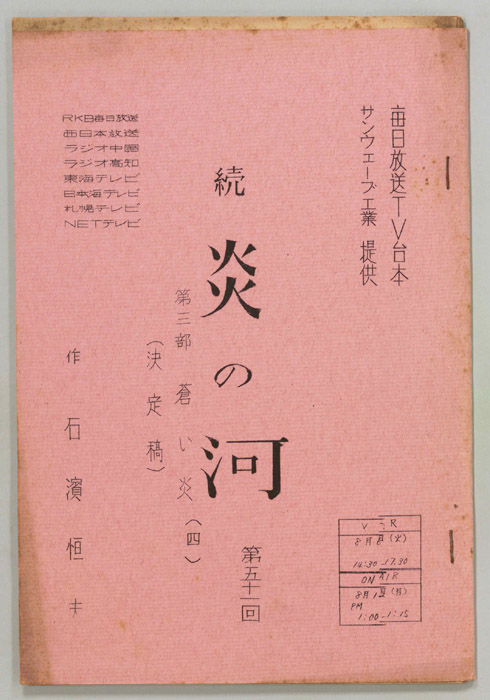 毎日放送TV台本
サンウェーブ工業 提供
続 炎の河
第五十一回
第三部 蒼い炎(四)
(決定稿)
作 石濱恒夫
RKB毎日放送
西日本放送
ラジオ中国
ラジオ高知
東海テレビ
日本海テレビ
札幌テレビ
NETテレビ
V R
8月8日(火)
14:30-17:30
ON AIR
(月)
PM
1:00-1:15